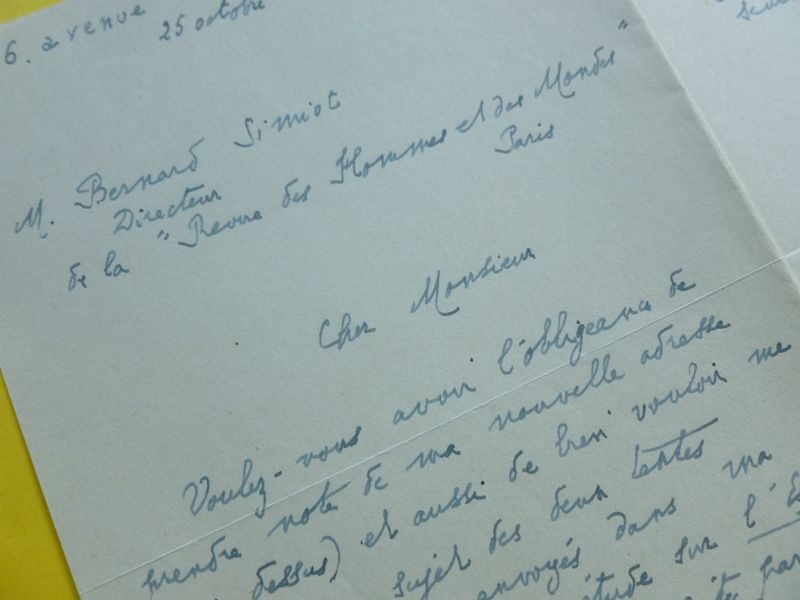 6. avenue
25 octobre
M. Bernard Simiot
Directeur
de la "Revue des Hommes et des Mondes"
Paris
Cher Monsieur
Voulez-vous avoir l'obligeance de
prendre note de ma nouvelle adresse
dessus) et aussi de bien vouloir me
sujet des deux textes
envoyés dans ma
étude sur l'E